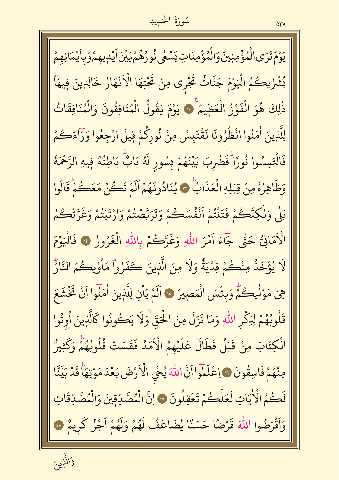 سُورَةُ الْحَدِيدِ
٥٣٨
يَوْمَ تَرَى الْمُؤْمِنِينَ وَالْمُؤْمِنَاتِ يَسْعٰى نُورُهُمْ بَيْنَ اَيْدِيهِمْ وَبِاَيْمَانِهِمْ
بُشْرٰيكُمُ الْيَوْمَ جَنَّاتٌ تَجْرِى مِنْ تَحْتِهَا الْاَنْهَارُ خَالِدِينَ فِيهَا
ذٰلِكَ هُوَ الْفَوْزُ الْعَظِيمُ ۝ يَوْمَ يَقُولُ الْمُنَافِقُونَ وَالْمُنَافِقَاتُ
لِلَّذِينَ اٰمَنُوا انْظُرُونَا نَقْتَبِسْ مِنْ نُورِكُمْ قِيلَ ارْجِعُوا وَرَآءَكُمْ
فَالْتَمِسُوا نُورًا فَضُرِبَ بَيْنَهُمْ بِسُورٍ لَهُ بَابٌ بَاطِنُهُ فِيهِ الرَّحْمَةُ
وَظَاهِرُهُ مِنْ قِبَلِهِ الْعَذَابُ ۝ يُنَادُونَهُمْ اَلَمْ نَكُنْ مَعَكُمْ قَالُوا
بَلٰى وَلٰكِنَّكُمْ فَتَنْتُمْ اَنْفُسَكُمْ وَتَرَبَّصْتُمْ وَارْتَبْتُمْ وَغَرَّتْكُمُ
الْاَمَانِىُّ حَتّٰى جَآءَ اَمْرُ اللّٰهِ وَغَرَّكُمْ بِاللّٰهِ الْغَرُورُ ۝ فَالْيَوْمَ
لَا يُؤْخَذُ مِنْكُمْ فِدْيَةٌ وَلَا مِنَ الَّذِينَ كَفَرُوا مَاْوٰيكُمُ النَّارُ
هِىَ مَوْلٰيكُمْ وَبِئْسَ الْمَصِيرُ ۝ اَلَمْ يَاْنِ لِلَّذِينَ اٰمَنُوا اَنْ تَخْشَعَ
قُلُوبُهُمْ لِذِكْرِ اللّٰهِ وَمَا نَزَلَ مِنَ الْحَقِّ وَلَا يَكُونُوا كَالَّذِينَ اُوتُوا
الْكِتَابَ مِنْ قَبْلُ فَطَالَ عَلَيْهِمُ الْاَمَدُ فَقَسَتْ قُلُوبُهُمْ وَكَثِيرٌ
مِنْهُمْ فَاسِقُونَ ۝ اِعْلَمُوا اَنَّ اللّٰهَ يُحْىِ الْاَرْضَ بَعْدَ مَوْتِهَا قَدْ بَيَّنَّا
لَكُمُ الْاٰيَاتِ لَعَلَّكُمْ تَعْقِلُونَ ۝ اِنَّ الْمُصَّدِّقِينَ وَالْمُصَّدِّقَاتِ
وَاَقْرَضُوا اللّٰهَ قَرْضًا حَسَنًا يُضَاعَفُ لَهُمْ وَلَهُمْ اَجْرٌ كَرِيمٌ ۝
وَالَّذِينَ